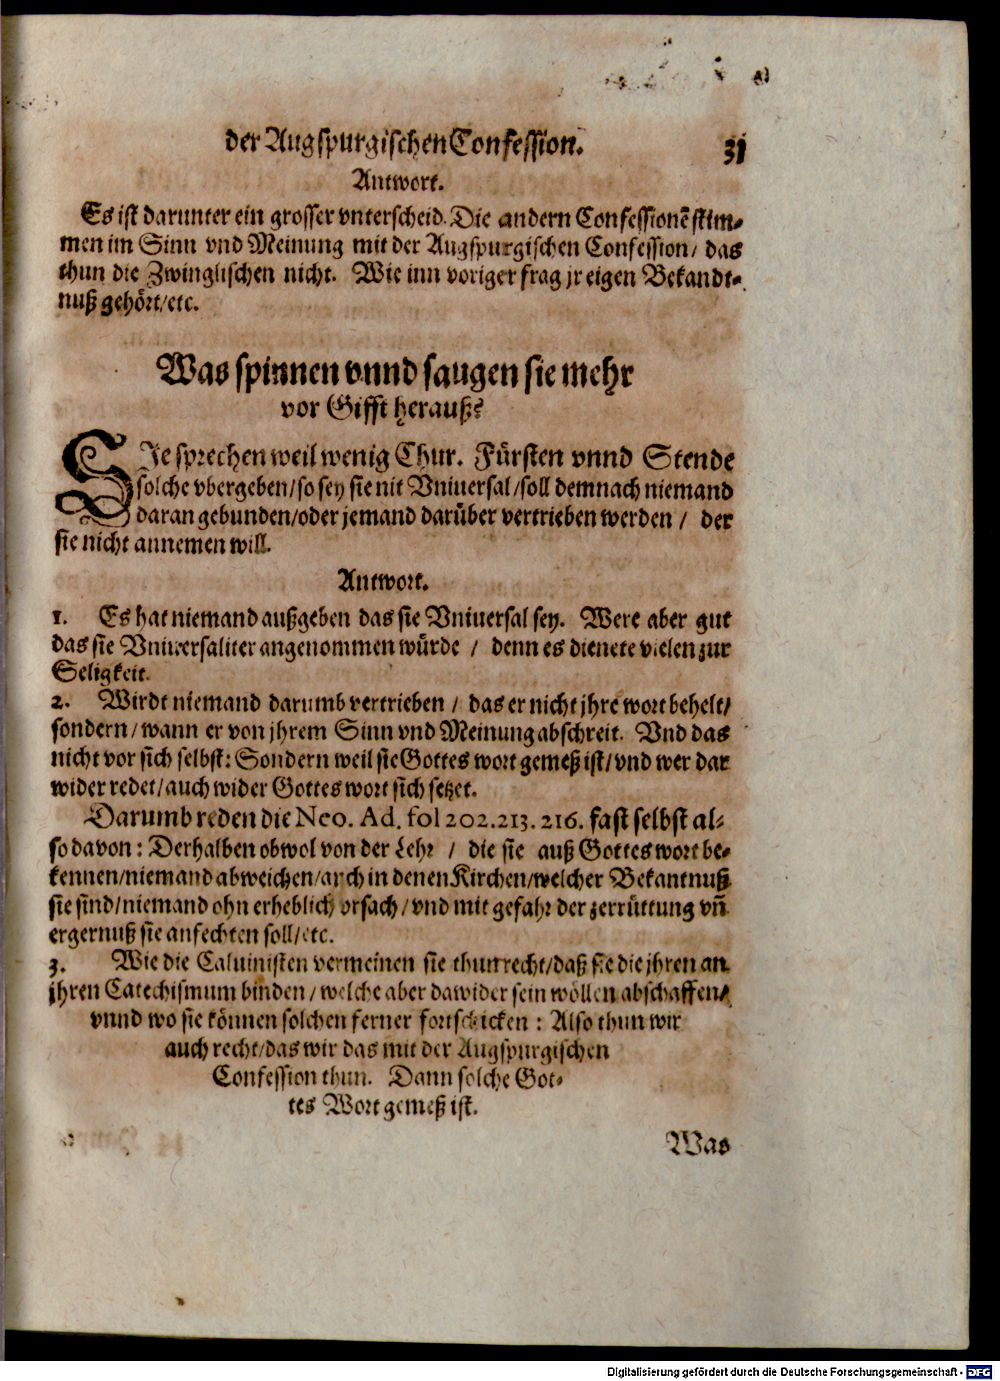 der Augspurgischen Confession. 31
Antwort.
Es ist darunter ein grosser vnterscheid. Die andern Confessionē stim-
men im Sinn vnd Meinung mit der Augspurgischen Confession/ das
thun die Zwinglischen nicht. Wie inn voriger frag jr eigen Bekandt-
nuß gehört/etc.
Was spinnen vnnd saugen sie mehr
vor Gifft herauß?
SJe sprechen weil wenig Chur. Fürsten vnnd Stende
solche vbergeben/so sey sie nit Vniuersal/soll demnach niemand
daran gebunden/oder jemand darüber vertrieben werden / der
sie nicht annemen will.
Antwort.
1. Es hat niemand außgeben das sie Vniuersal sey. Were aber gut
das sie Vniuersaliter angenommen würde / denn es dienete vielen zur
Seligkeit.
2. Wirdt niemand darumb vertrieben / das er nicht jhre wort behelt/
sondern/wann er von jhrem Sinn vnd Meinung abschreit. Vnd das
nicht vor sich selbst: Sondern weil sie Gottes wort gemeß ist/vnd wer dar
wider redet/auch wider Gottes wort sich setzet.
Darumb reden die Neo. Ad. fol 202.213. 216. fast selbst al-
so davon: Derhalben obwol von der Lehr / die sie auß Gottes wort be-
kennen/niemand abweichen/auch in denen Kirchen/welcher Bekantnuß
sie sind/niemand ohn erheblich vrsach/vnd mit gefahr der zerrüttung vñ
ergernuß sie anfechten soll/etc.
3. Wie die Caluinisten vermeinen sie thun recht/daß sie die jhren an
jhren Catechismum binden/welche aber dawider sein wöllen abschaffen/
vnnd wo sie können solchen ferner fortschicken: Also thun wir
auch recht/das wir das mit der Augspurgischen
Confession thun. Dann solche Got-
tes Wort gemeß ist.
Was
Digitalisierung gefördert durch die Deutsche Forschungsgemeinschaft - DFG